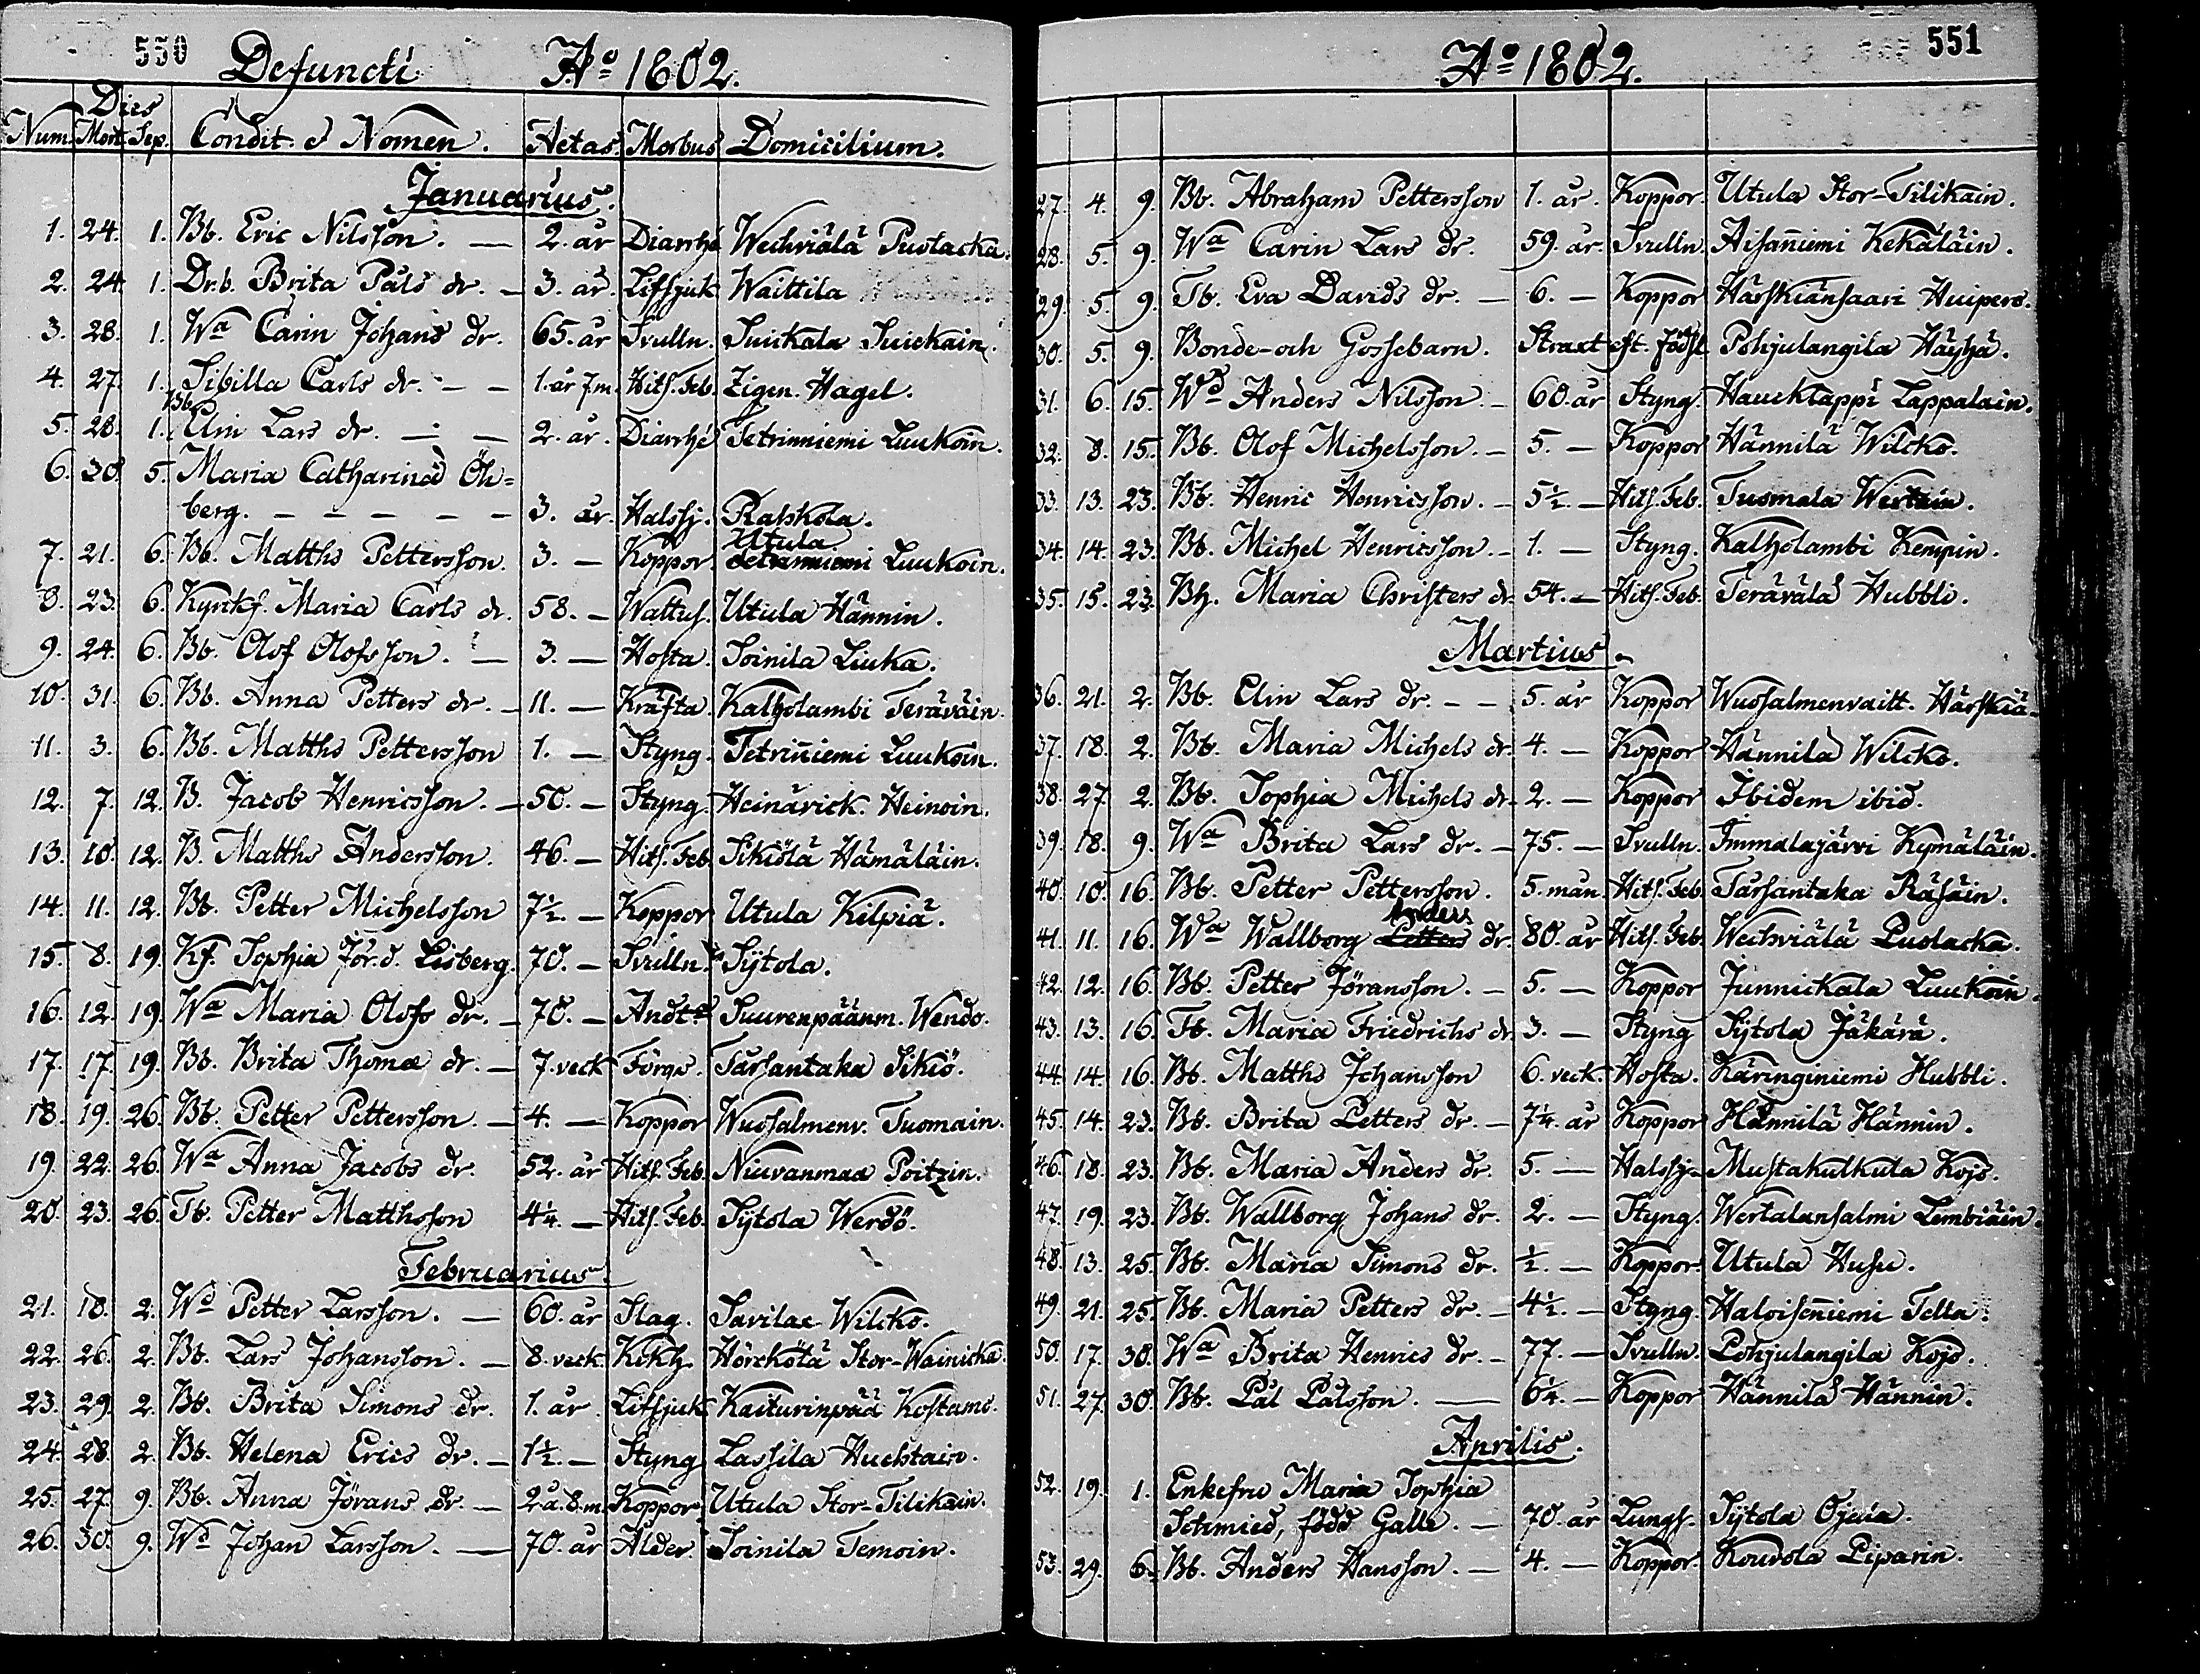 550 Defuncti Aº 1802.
Dies
Num. Mort. Sep. Condit. & Nomen. Aetas. Morbus Domicilium.
Januarius.
1. 24. 1. Bb. Eric Nilsson. — 2. år Diarrhé Wechviälä Puolacka.
2. 24. 1. Drb. Brita Påls dr. — 3. år. Lifsjuk Waittila
3. 28. 1. Wa Carin Johans dr. 65. år Svulln. Suickala Suickain.
4. 27. 1. Sibilla Carls dr. — — 1. år 7 m. Hits. Feb. Zigen. Hagel.
5. 28. 1. Bb. Elin Lars dr. — — 2. år. Diarrhé Tetrinniemi Luukoin.
6. 30. 5. Maria Catharina Öh=
berg. — — — — — 3. år. Halssj. Rahikola.
Utula
7. 21. 6. Bb. Matths Pettersson. 3. — Koppor Tetrinniemi Luukoin.
8. 23. 6. Kyrkf. Maria Carls dr. 58. — Wattus. Utula Hännin.
9. 24. 6. Bb. Olof Olofsson. — 3. — Hosta. Soinila Liuka.
10. 31. 6. Bb. Anna Petters dr. — 11. — Kräfta. Kalholambi Teräväin.
11. 3. 6. Bb. Matths Pettersson 1. — Styng. Tetriñiemi Luukoin.
12. 7. 12. B. Jacob Henricsson. — 50. — Styng. Heinärick. Heinoin.
13. 10. 12. B. Matths Andersson. 46. — Hits. Feb. Sikiölä Hämäläin.
14. 11. 12. Bb. Petter Michelsson 7½. — Koppor Utula Kilpiä.
15. 8. 19. Kf. Sophia Jör. d. Lisberg. 70. — Svulln. Sÿtola.
16. 12. 19. Wa Maria Olofs dr. — 70. — Andt. Suurenpäänm. Wendo.
17. 17. 19. Bb. Brita Thomæ dr. — 7. veck Förgs. Tarsantaka Sikiö.
18. 19. 26. Bb. Petter Pettersson. — 4. — Koppor Wuosalmenv. Tuomain.
19. 22. 26. Wa Anna Jacobs dr. 52. år Hits. Feb. Niuvanmaa Poitzin.
20. 23. 26. Tb. Petter Matthsson 4¼. — Hits. Feb. Sÿtola Werdö.
Februarius.
21. 18. 2. Wd Petter Larsson. — 60. år Slag. Savilax Wilcko.
22. 26. 2. Bb. Lars Johansson. — 8. veck. Kikh. Hörckölä Stor-Wainicka.
23. 29. 2. Bb. Brita Simons dr. 1. år. Lifsjuk Kaiturinpää Kostamo.
24. 28. 2. Bb. Helena Erics dr. — 1½. — Styng Lassila Huchtain.
25. 27. 9. Bb. Anna Jörans dr. — 2 å. 8. m. Koppor Utula Stor-Tilikain.
26. 30. 9. Wd Johan Larsson. — 70. år Ålder. Soinila Temoin.
Aº 1802. 551
27. 4. 9. Bb. Abraham Pettersson 1. år. Koppor. Utula Stor-Tilikain.
28. 5. 9. Wa Carin Lars dr. 59. år. Svulln. Aisañiemi Kekäläin.
29. 5. 9. Tb. Eva Davids dr. — 6. — Koppor Härskiänsaari Huipero.
30. 5. 9. Bonde- och Gossebarn. Straxt eft. födsl. Pohjulangila Häyhä.
31. 6. 15. Wd Anders Nilsson. — 60. år Styng. Haucklappi Lappalain.
32. 8. 15. Bb. Olof Michelsson. — 5. — Koppor Hännilä Wilcko.
33. 13. 23. Bb. Henric Henricsson. — 5½ — Hits. Feb. Tuomala Wertain.
34. 14. 23. Bb. Michel Henricsson. — 1. — Styng. Kalholambi Kempin.
35. 15. 23. Bh. Maria Christers dr. 54. — Hits. Feb. Terävälä Hubbli.
Martius.
36. 21. 2. Bb. Elin Lars dr. — — 5. år Koppor Wuosalmenvaitt. Härskiä.
37. 18. 2. Bb. Maria Michels dr. 4. — Koppor Hännilä Wilcko.
38. 27. 2. Bb. Sophia Michels dr. 2. — Koppor Ibidem ibid.
39. 18. 9. Wa Brita Lars dr. — 75. — Svulln. Immalajärvi Kymäläin.
40. 10. 16. Bb. Petter Pettersson. 5. mån. Hits. Feb. Tarsantaka Räsäin.
Anders
41. 11. 16. Wa Wallborg Petters dr. 80. år Hits. Feb. Wechviälä Puolacka.
42. 12. 16. Bb. Petter Jöransson. — 5. — Koppor Junnickala Luukoin.
43. 13. 16. Tb. Maria Friedrichs dr. 3. — Styng Sÿtola Jäkärä.
44. 14. 16. Bb. Matths Johansson 6. veck. Hosta. Käringiniemi Hubbli.
45. 14. 23. Bb. Brita Petters dr. — 7¼. år Koppor Hännilä Hännin.
46. 18. 23. Bb. Maria Anders dr. 5. — Halssj. Mustakulkula Kojo.
47. 19. 23. Bb. Wallborg Johans dr. 2. — Styng. Wertalansalmi Lembiäin.
48. 13. 25. Bb. Maria Simons dr. ½. — Koppor. Utula Husu.
49. 21. 25. Bb. Maria Petters dr. — 4½. — Styng. Haloiseñiemi Tella.
50. 17. 30. Wa Brita Henrics dr. — 77. — Svulln. Pohjulangila Kojo.
51. 27. 30. Bb. Pål Pålsson. — 6¼. — Koppor Hännilä Hännin.
Aprilis.
52. 19. 1. Enkefru Maria Sophia
Schmied, född Galle. — 70. år Lungs. Sÿtola Ojala.
53. 29. 6. Bb. Anders Hansson. — 4. — Koppor. Kouvola Piparin.